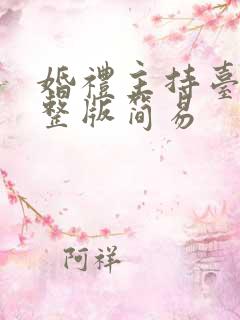 婚禮主持臺
整版簡易
阿祥